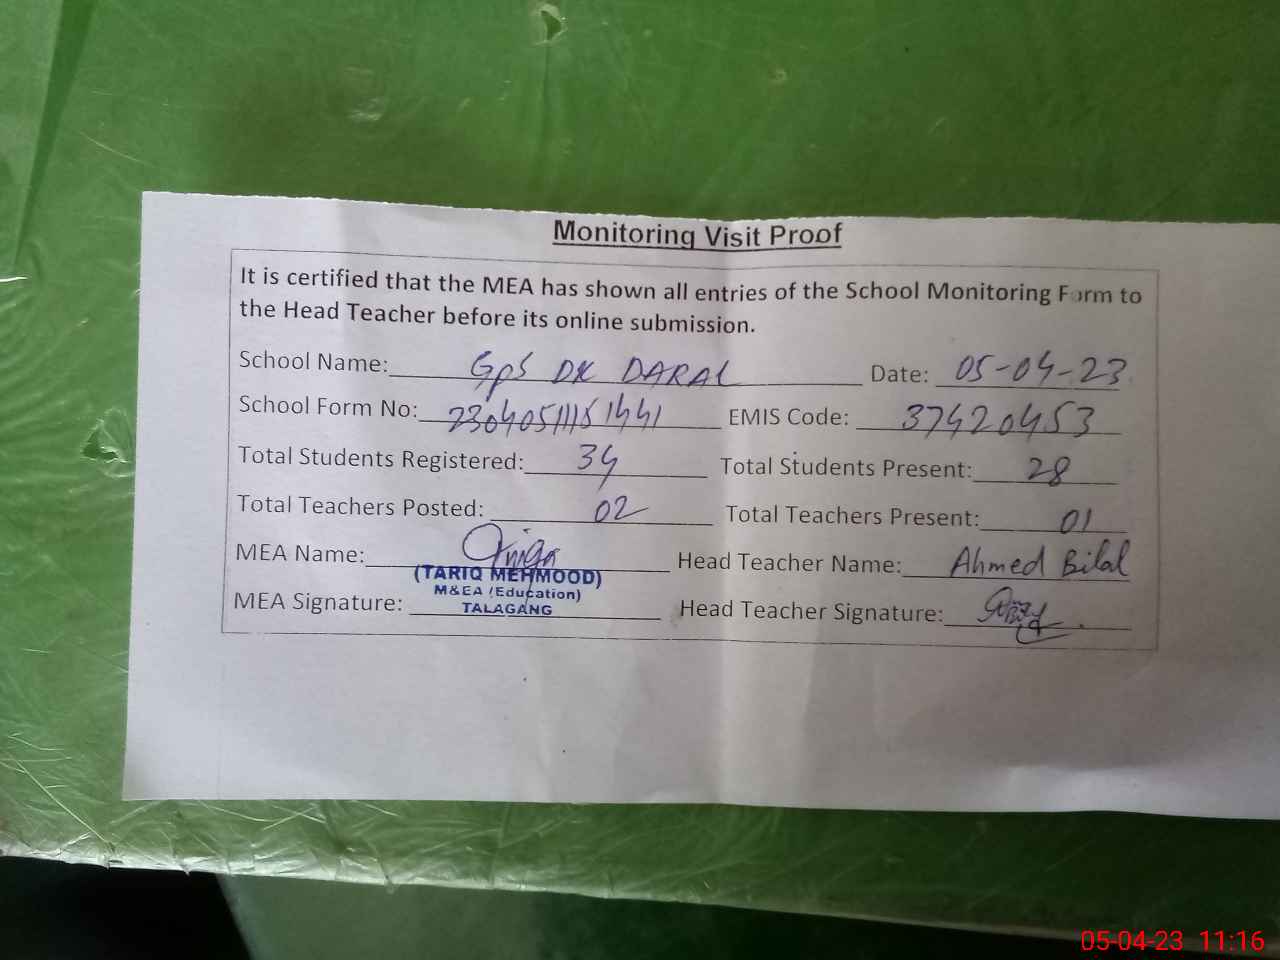 Monitoring Visit Proof
It is certified that the MEA has shown all entries of the School Monitoring Form to
the Head Teacher before its online submission.
School Name: GpS DK DARAL Date: 05-04-23
School Form No: EMIS Code: 37420453
Total Students Registered: 34 Total Students Present: 28
Total Teachers Posted: 02 Total Teachers Present: 01
MEA Name: Head Teacher Name: Ahmed Bilal
(TARIQ MEHMOOD)
M&EA (Education)
TALAGANG
MEA Signature: Head Teacher Signature:
05-04-23 11:16